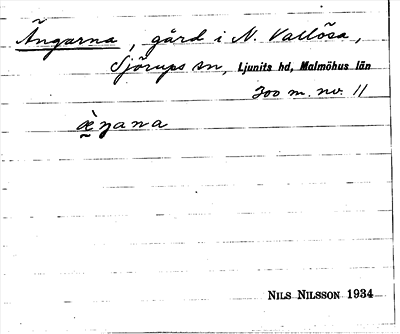 Ängarna, gård i N. Vallösa,
Sjörups sn, Ljunits hd, Malmöhus län
300 m. nv. 11
NILS NILSSON 1934